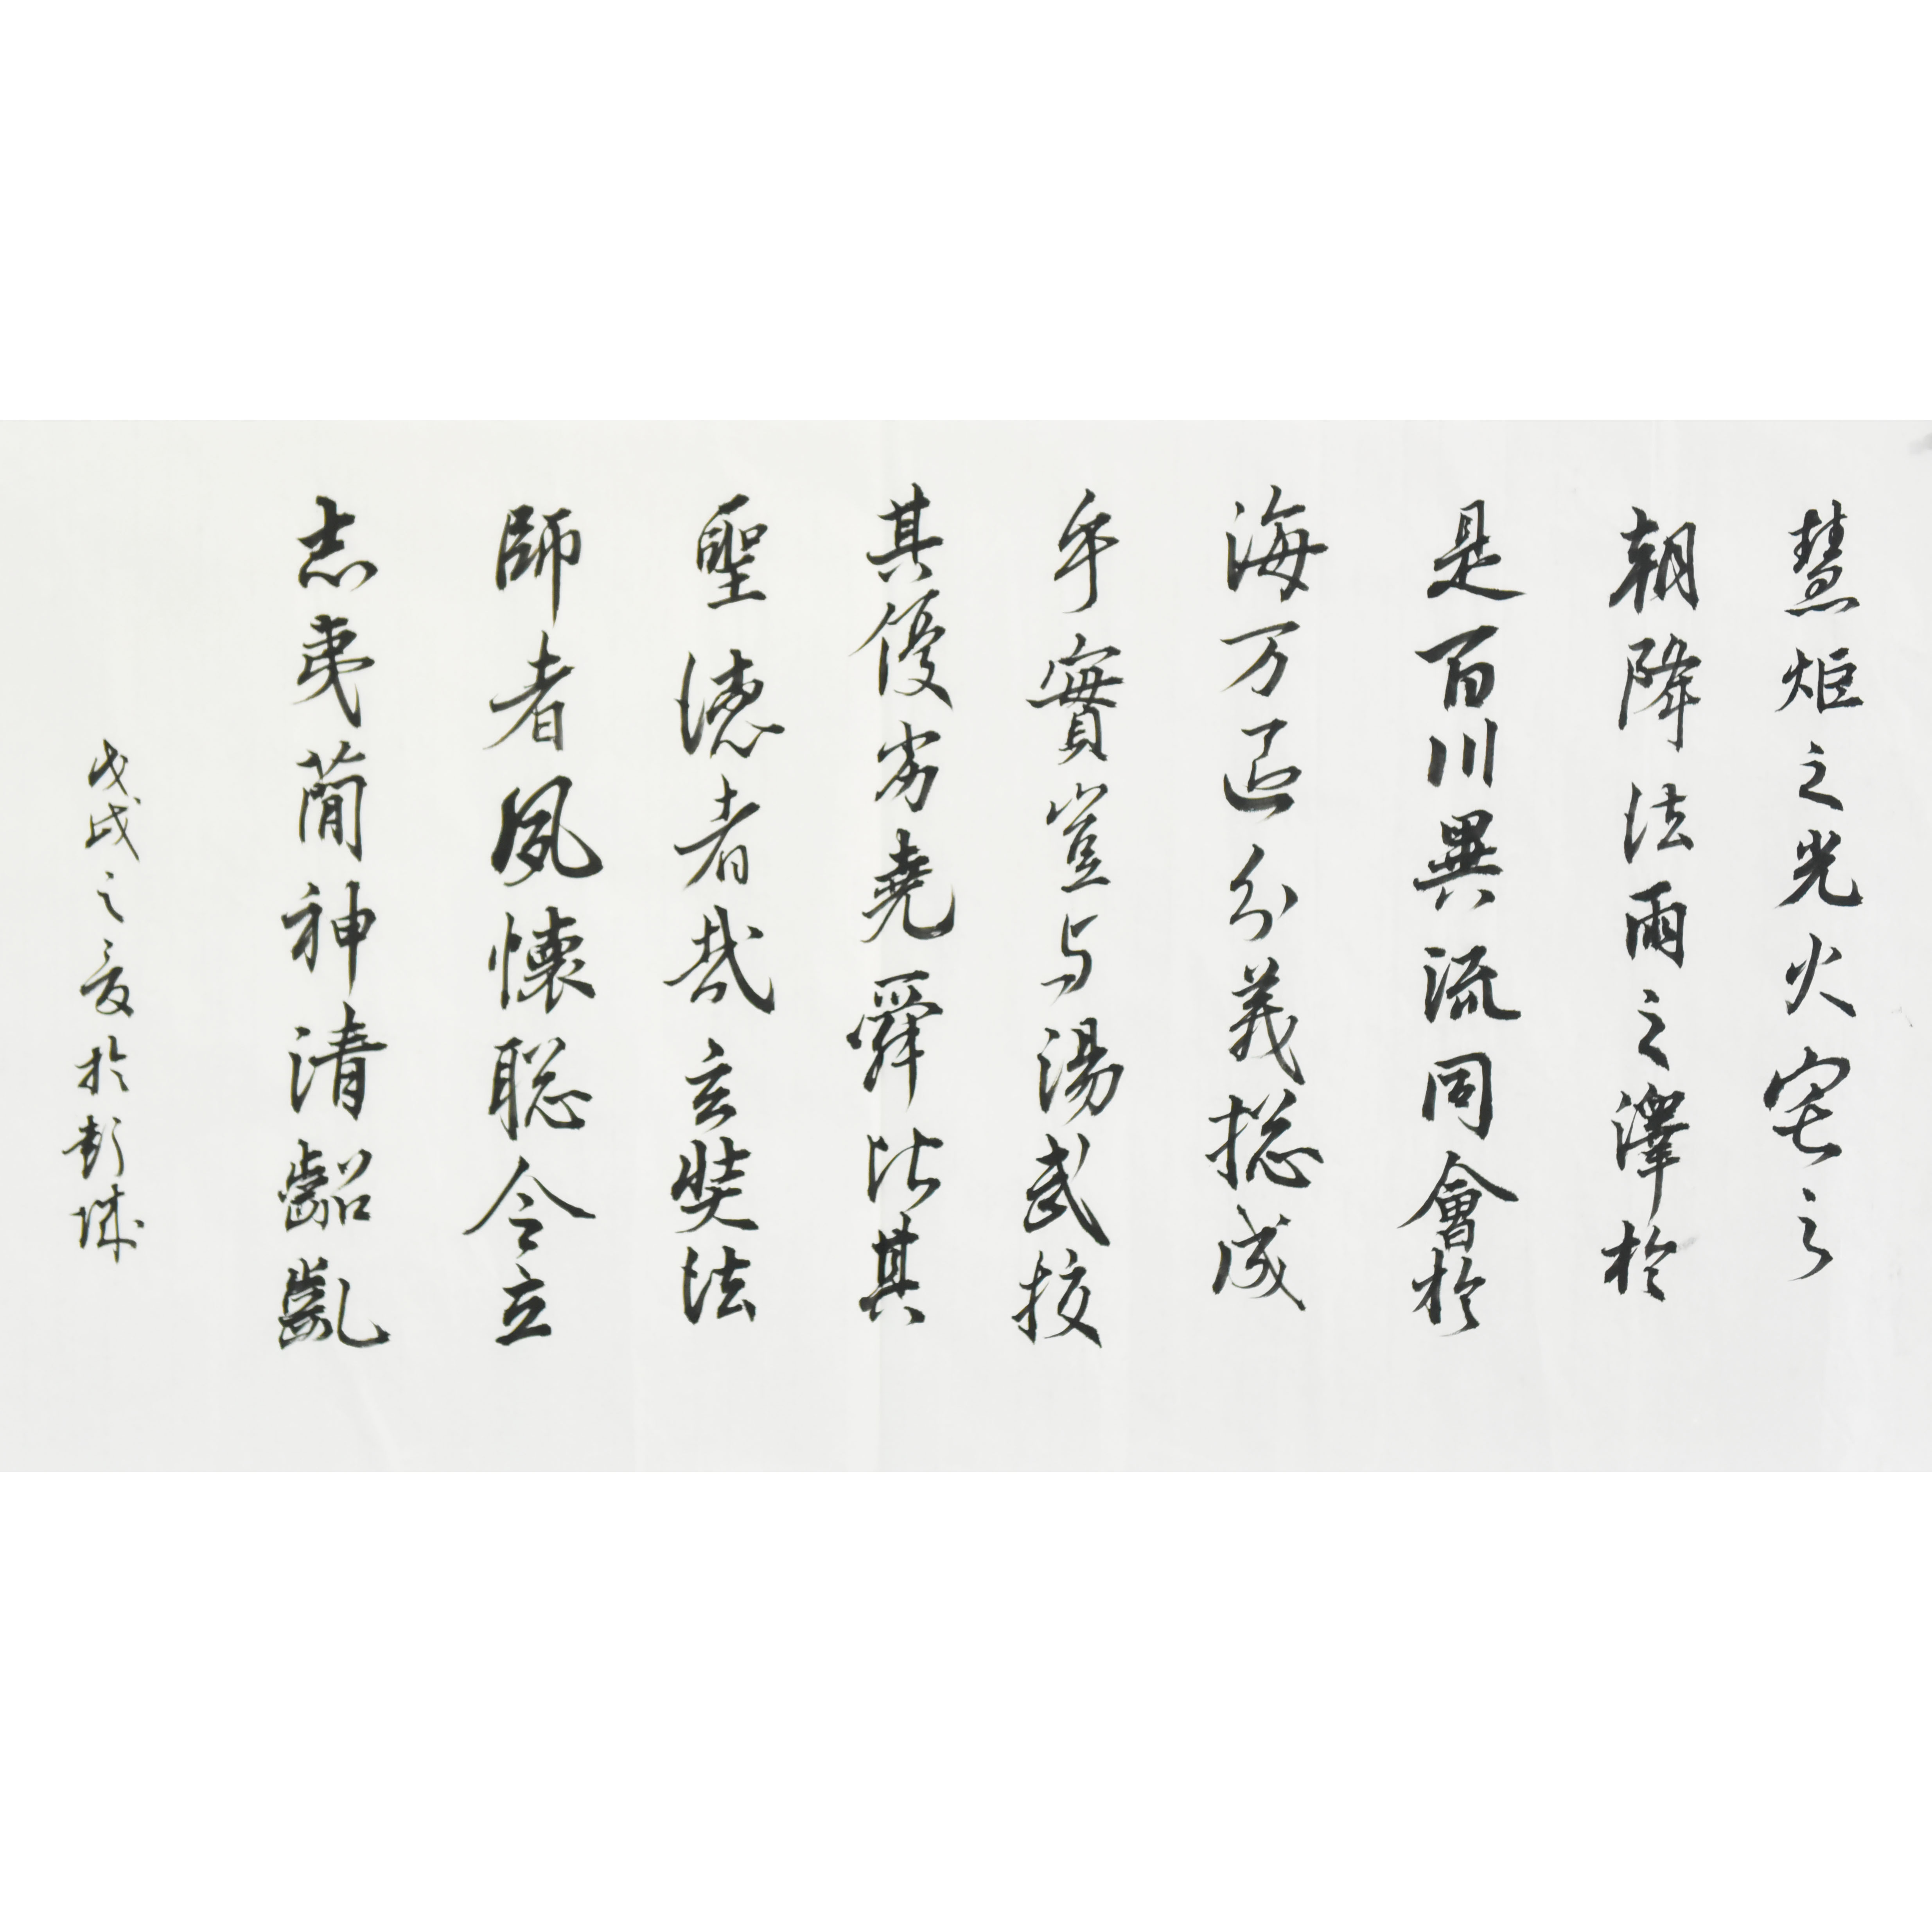 慧炬之光火宅之
朝降法雨之澤於
是百川異流同會於
海万區分義揔成
乎實豈与湯武挍
其優劣堯舜比其
聖德者哉玄奘法
師者夙懷聡令立
志夷蕳神清齠齔
戊戌之夏於彭城